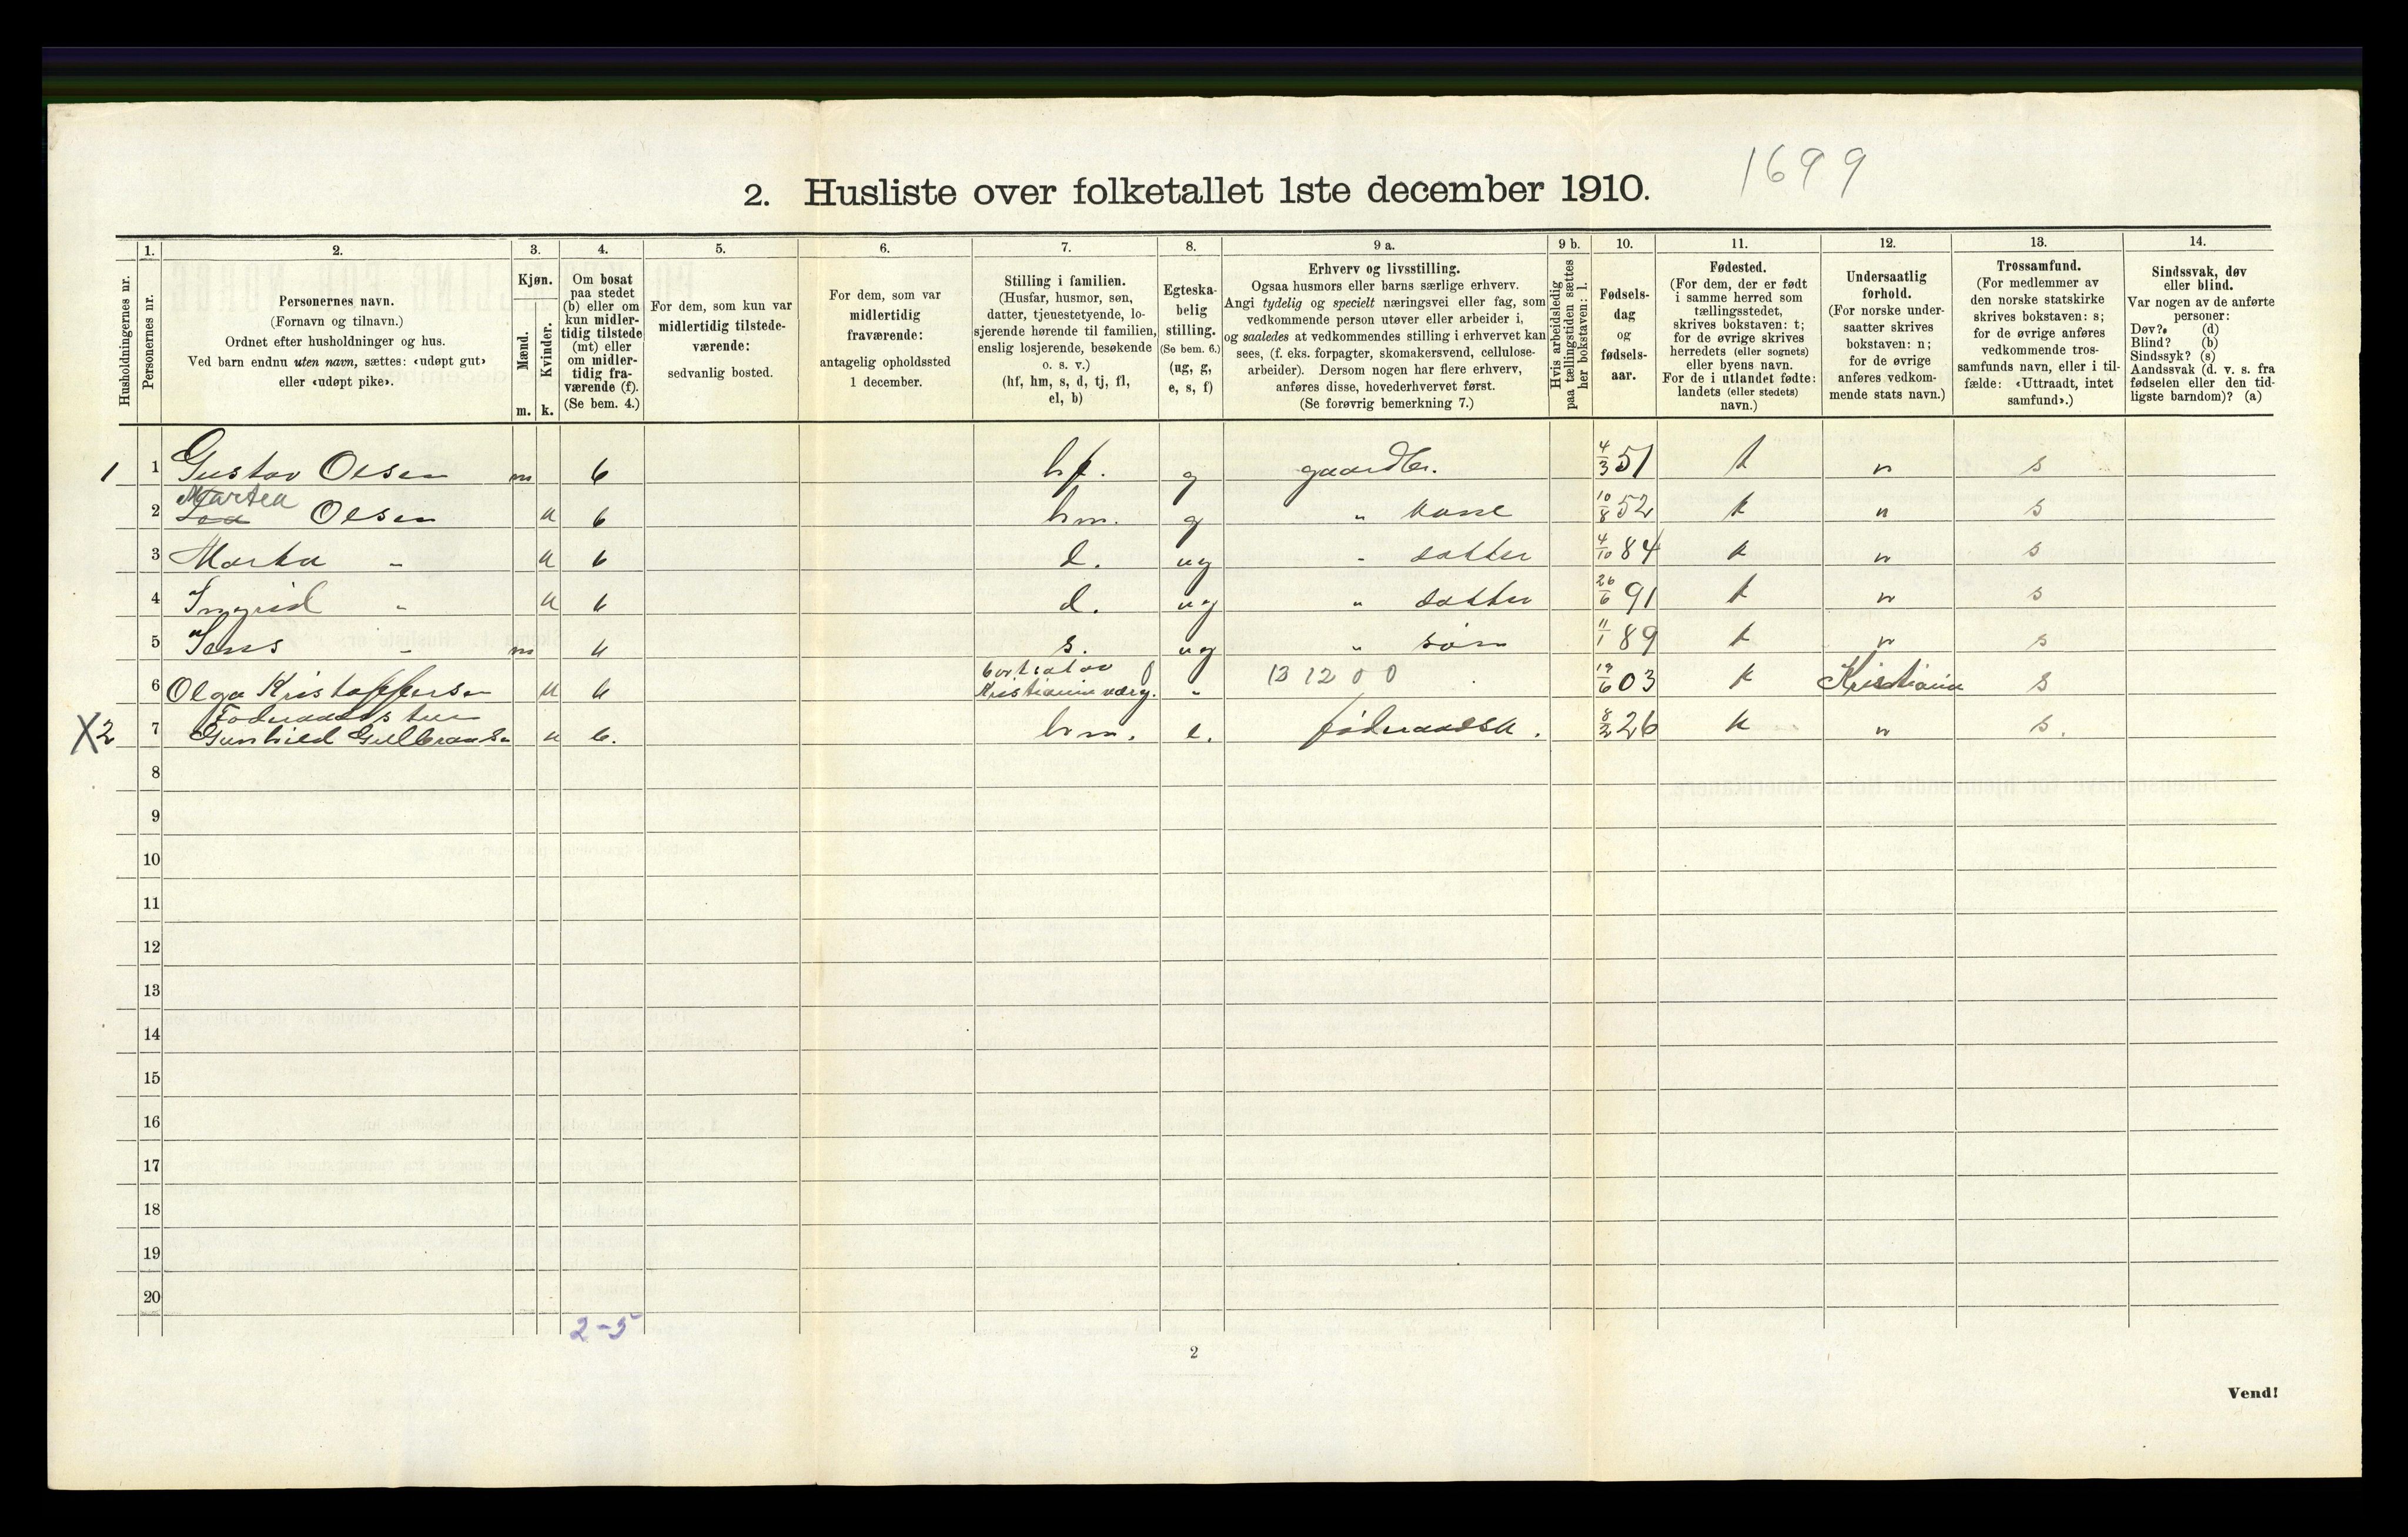 1699
2. Husliste over folketallet 1ste december 1910.
Husholdningernes nr.
1.
Personernes nr.
2.
Personernes navn.
(Fornavn og tilnavn.)
Ordnet efter husholdninger og hus.
Ved barn endnu uten navn, sættes: «udøpt gut»
eller «udøpt pike».
3.
Kjøn.
Mænd.
Kvinder.
m. k.
4.
Om bosat
paa stedet
(b) eller om
kun midler-
tidig tilstede
(mt) eller
om midler-
tidig fra-
værende (f).
(Se bem. 4.)
5.
For dem, som kun var
midlertidig tilstede-
værende:
sedvanlig bosted.
6.
For dem, som var
midlertidig
fraværende:
antagelig opholdssted
1 december.
7.
Stilling i familien.
(Husfar, husmor, søn,
datter, tjenestetyende, lo-
sjerende hørende til familien,
enslig losjerende, besøkende
o. s. v.)
(hf, hm, s, d, tj, fl,
el, b)
8.
Egteska-
belig
stilling.
(Se bem. 6.)
(ug, g,
e, s, f)
9 a.
Erhverv og livsstilling.
Ogsaa husmors eller barns særlige erhverv.
Angi tydelig og specielt næringsvei eller fag, som
vedkommende person utøver eller arbeider i,
og saaledes at vedkommendes stilling i erhvervet kan
sees, (f. eks. forpagter, skomakersvend, cellulose-
arbeider). Dersom nogen har flere erhverv,
anføres disse, hovederhvervet først.
(Se forøvrig bemerkning 7.)
9 b.
Hvis arbeidsledig
paa tællingstiden sættes
her bokstaven: l.
10.
Fødsels-
dag
og
fødsels-
aar.
11.
Fødested.
(For dem, der er født
i samme herred som
tællingsstedet,
skrives bokstaven: t;
for de øvrige skrives
herredets (eller sognets)
eller byens navn.
For de i utlandet fødte:
landets (eller stedets)
navn.)
12.
Undersaatlig
forhold.
(For norske under-
saatter skrives
bokstaven: n;
for de øvrige
anføres vedkom-
mende stats navn.)
13.
Trossamfund.
(For medlemmer av
den norske statskirke
skrives bokstaven: s;
for de øvrige anføres
vedkommende tros-
samfunds navn, eller i til-
fælde: «Uttraadt, intet
samfund».)
14.
Sindssvak, døv
eller blind.
Var nogen av de anførte
personer:
Døv? (d)
Blind? (b)
Sindssyk? (s)
Aandssvak (d. v. s. fra
fødselen eller den tid-
ligste barndom)? (a)
1 1 Gustav Olsen m b hf. g gaardbr. 4/3 51 t n s
Martea
2 Olsen k b hm. g " kone 10/8 52 t n s
3 Marta " k b d. ug " datter 4/10 84 t n s
4 Ingrid " k b d. ug " datter 26/6 91 t n s
5 Jens " m b s. ug " søn 11/1 89 t n s
6 Olga Kristoffersen k b bortsat av Kristiania værg. " 131200 19/6 03 t Kristiania s
Føderaadsstue
X2 7 Gunhild Gulbransen k b. hm. e. føderaadsk. 8/2 26 t n s.
8
9
10
11
12
13
14
15
16
17
18
19
20
2-5
2
Vend!